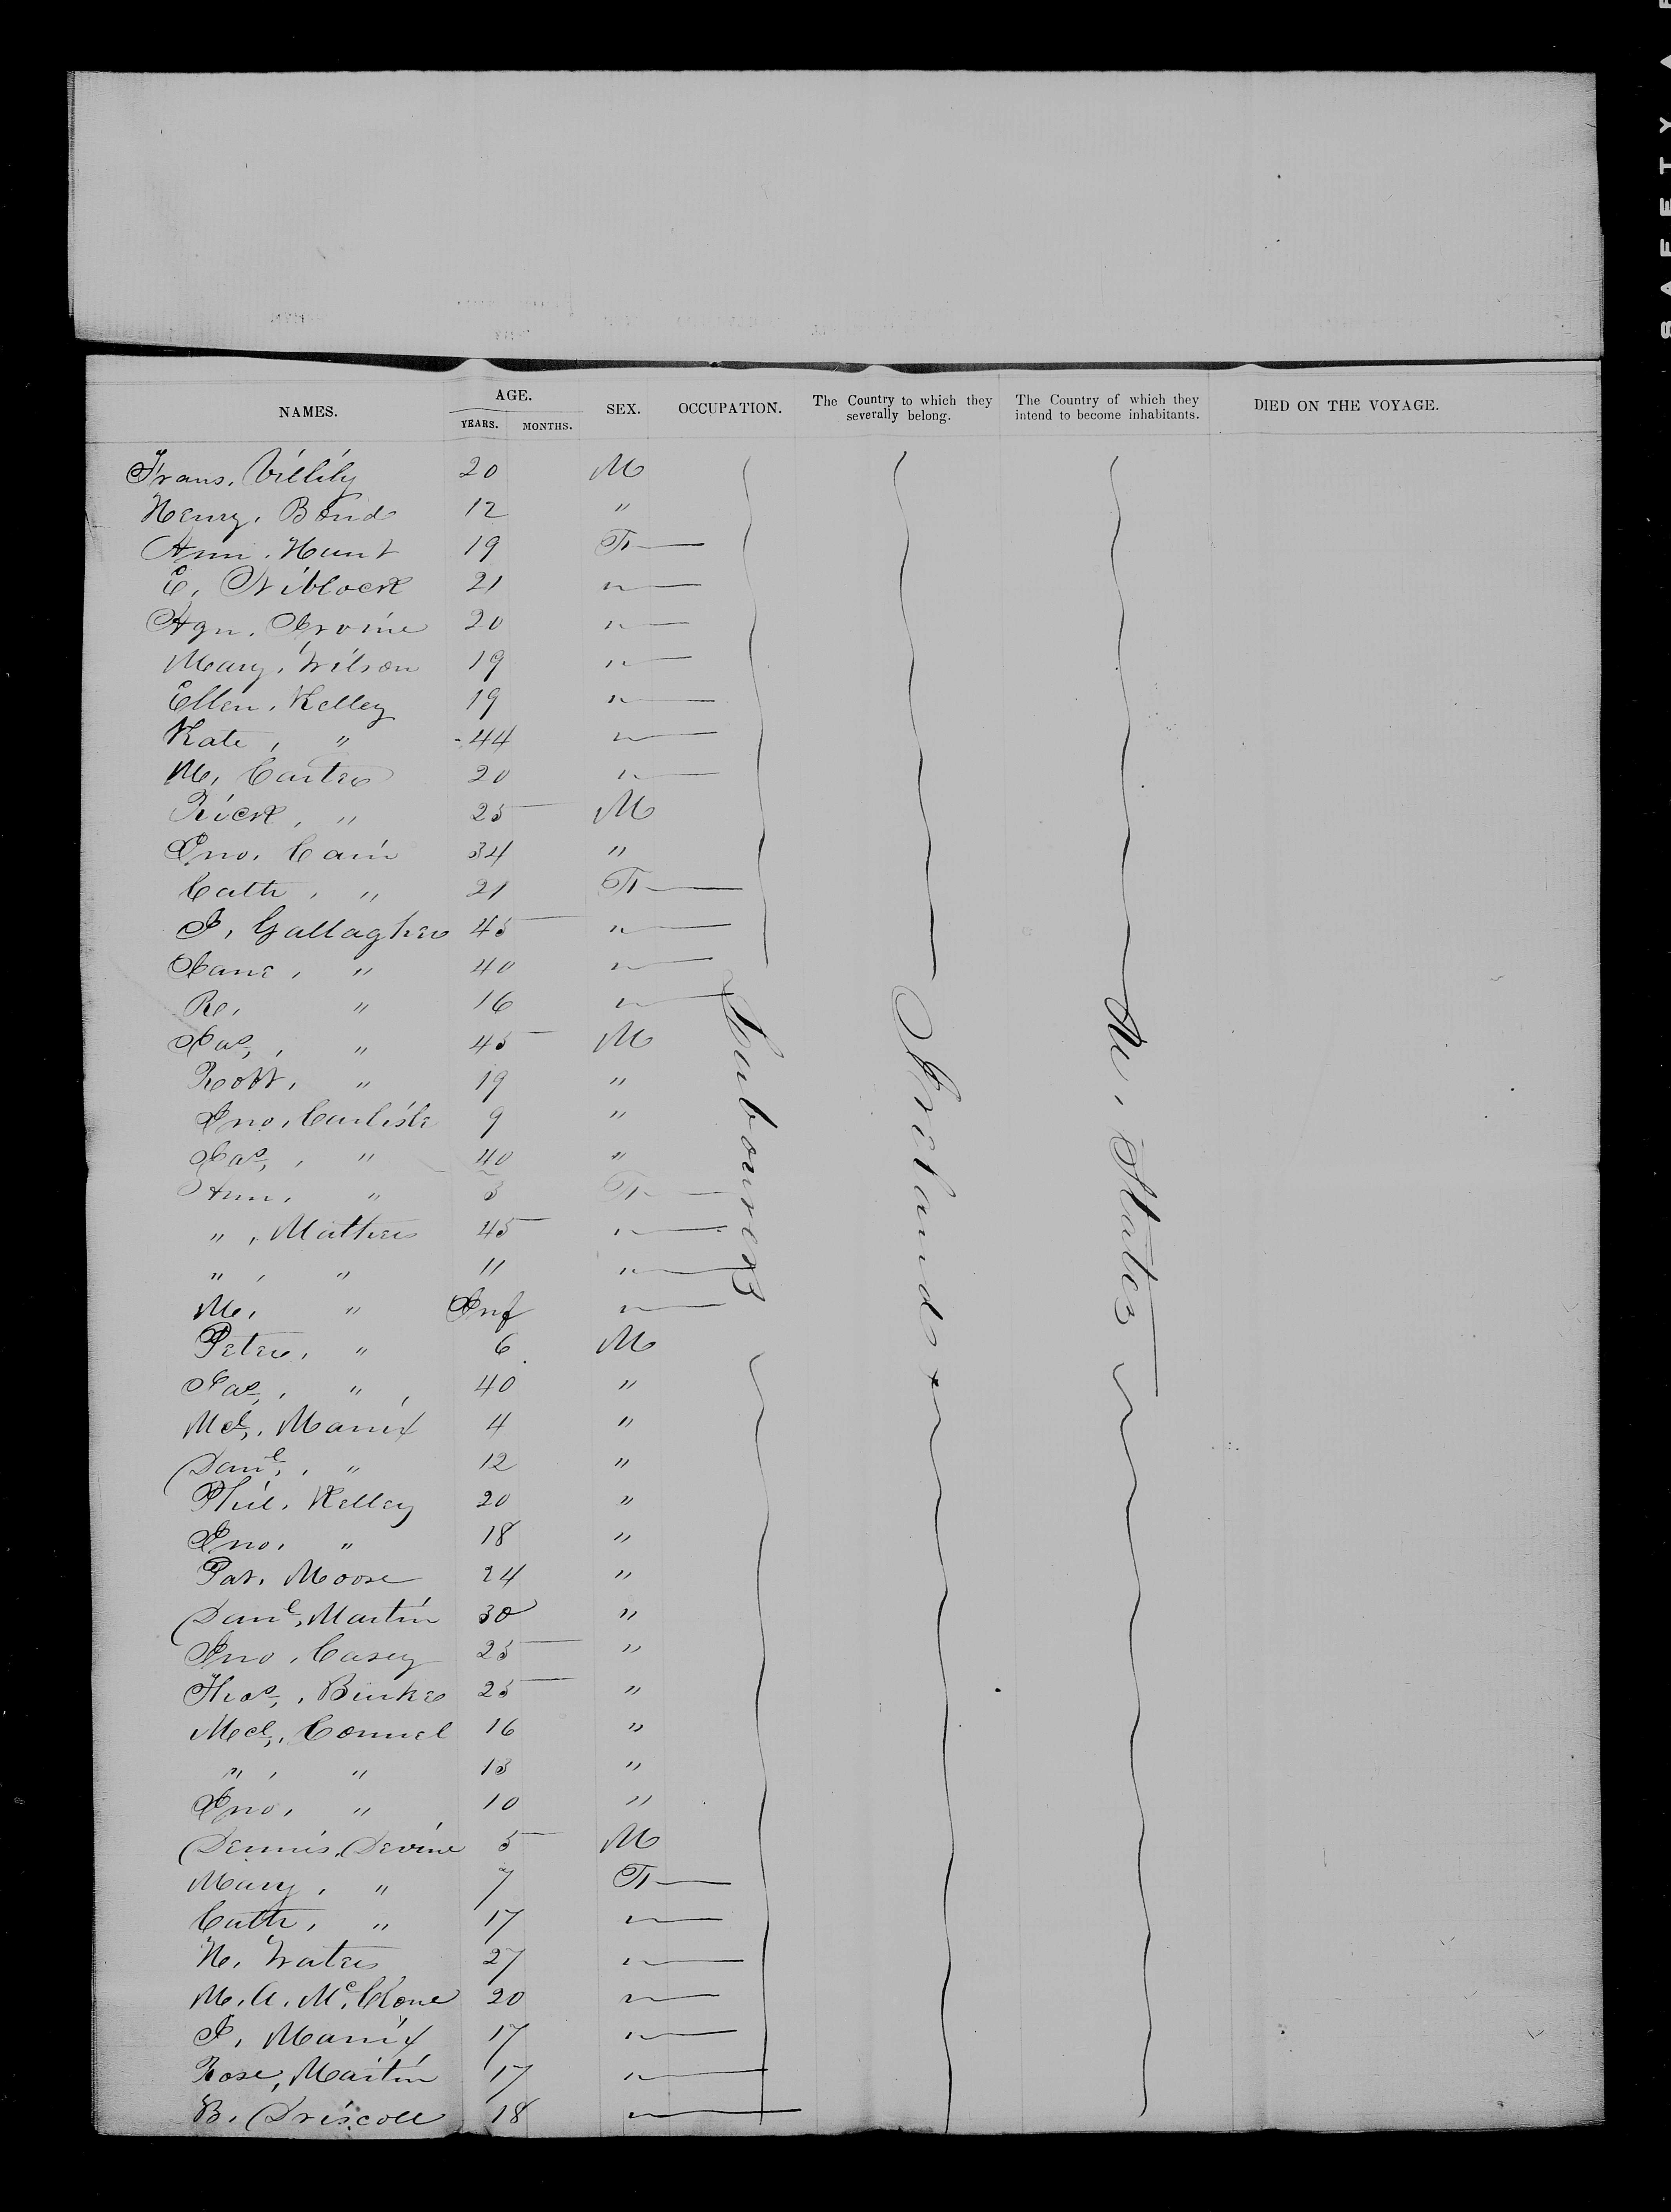 SAFETY
NAMES. AGE. YEARS. MONTHS. SEX. OCCUPATION. The Country to which they severally belong. The Country of which they intend to become inhabitants. DIED ON THE VOYAGE.
Frans. 20 M
Henry. Bond 12 "
Ann. Hunt 19 F
E. Niblock 21 "
Agn. Irvine 20 "
Mary. Wilson 19 "
Ellen. Kelley 19 "
Kate, " 44 "
M. Carter 20 "
Rick, " 25 M
Jno. Cain 34 "
Cath, " 21 F
J. Gallagher 45 "
Jane, " 40 "
R, " 16 "
Jas, " 45 M
Robt, " 19 "
Jno. Carlisle 9 "
Jas, " 40 "
Ann, " 3 F
", Mathers 45 "
", " 11 "
M, " Inf "
Peter, " 6 M
Jas, " 40 "
Mcl, Manix 4 "
Danl, " 12 "
Phil. Kelley 20 "
Jno, " 18 "
Pat. Moore 24 "
Danl, Martin 30 "
Jno, Casey 25 "
Thos, Burke 25 "
Mcl, Connel 16 "
", " 13 "
Jno, " 10 "
Dennis, Devine 5 M
Mary, " 7 F
Cath, " 17 "
H, Waters 27 "
M. A. Mc. Clone 20 "
J, Manix 17 "
Rose, Martin 17 "
B, Driscoll 18 "
Labourers
Ireland
Un. States